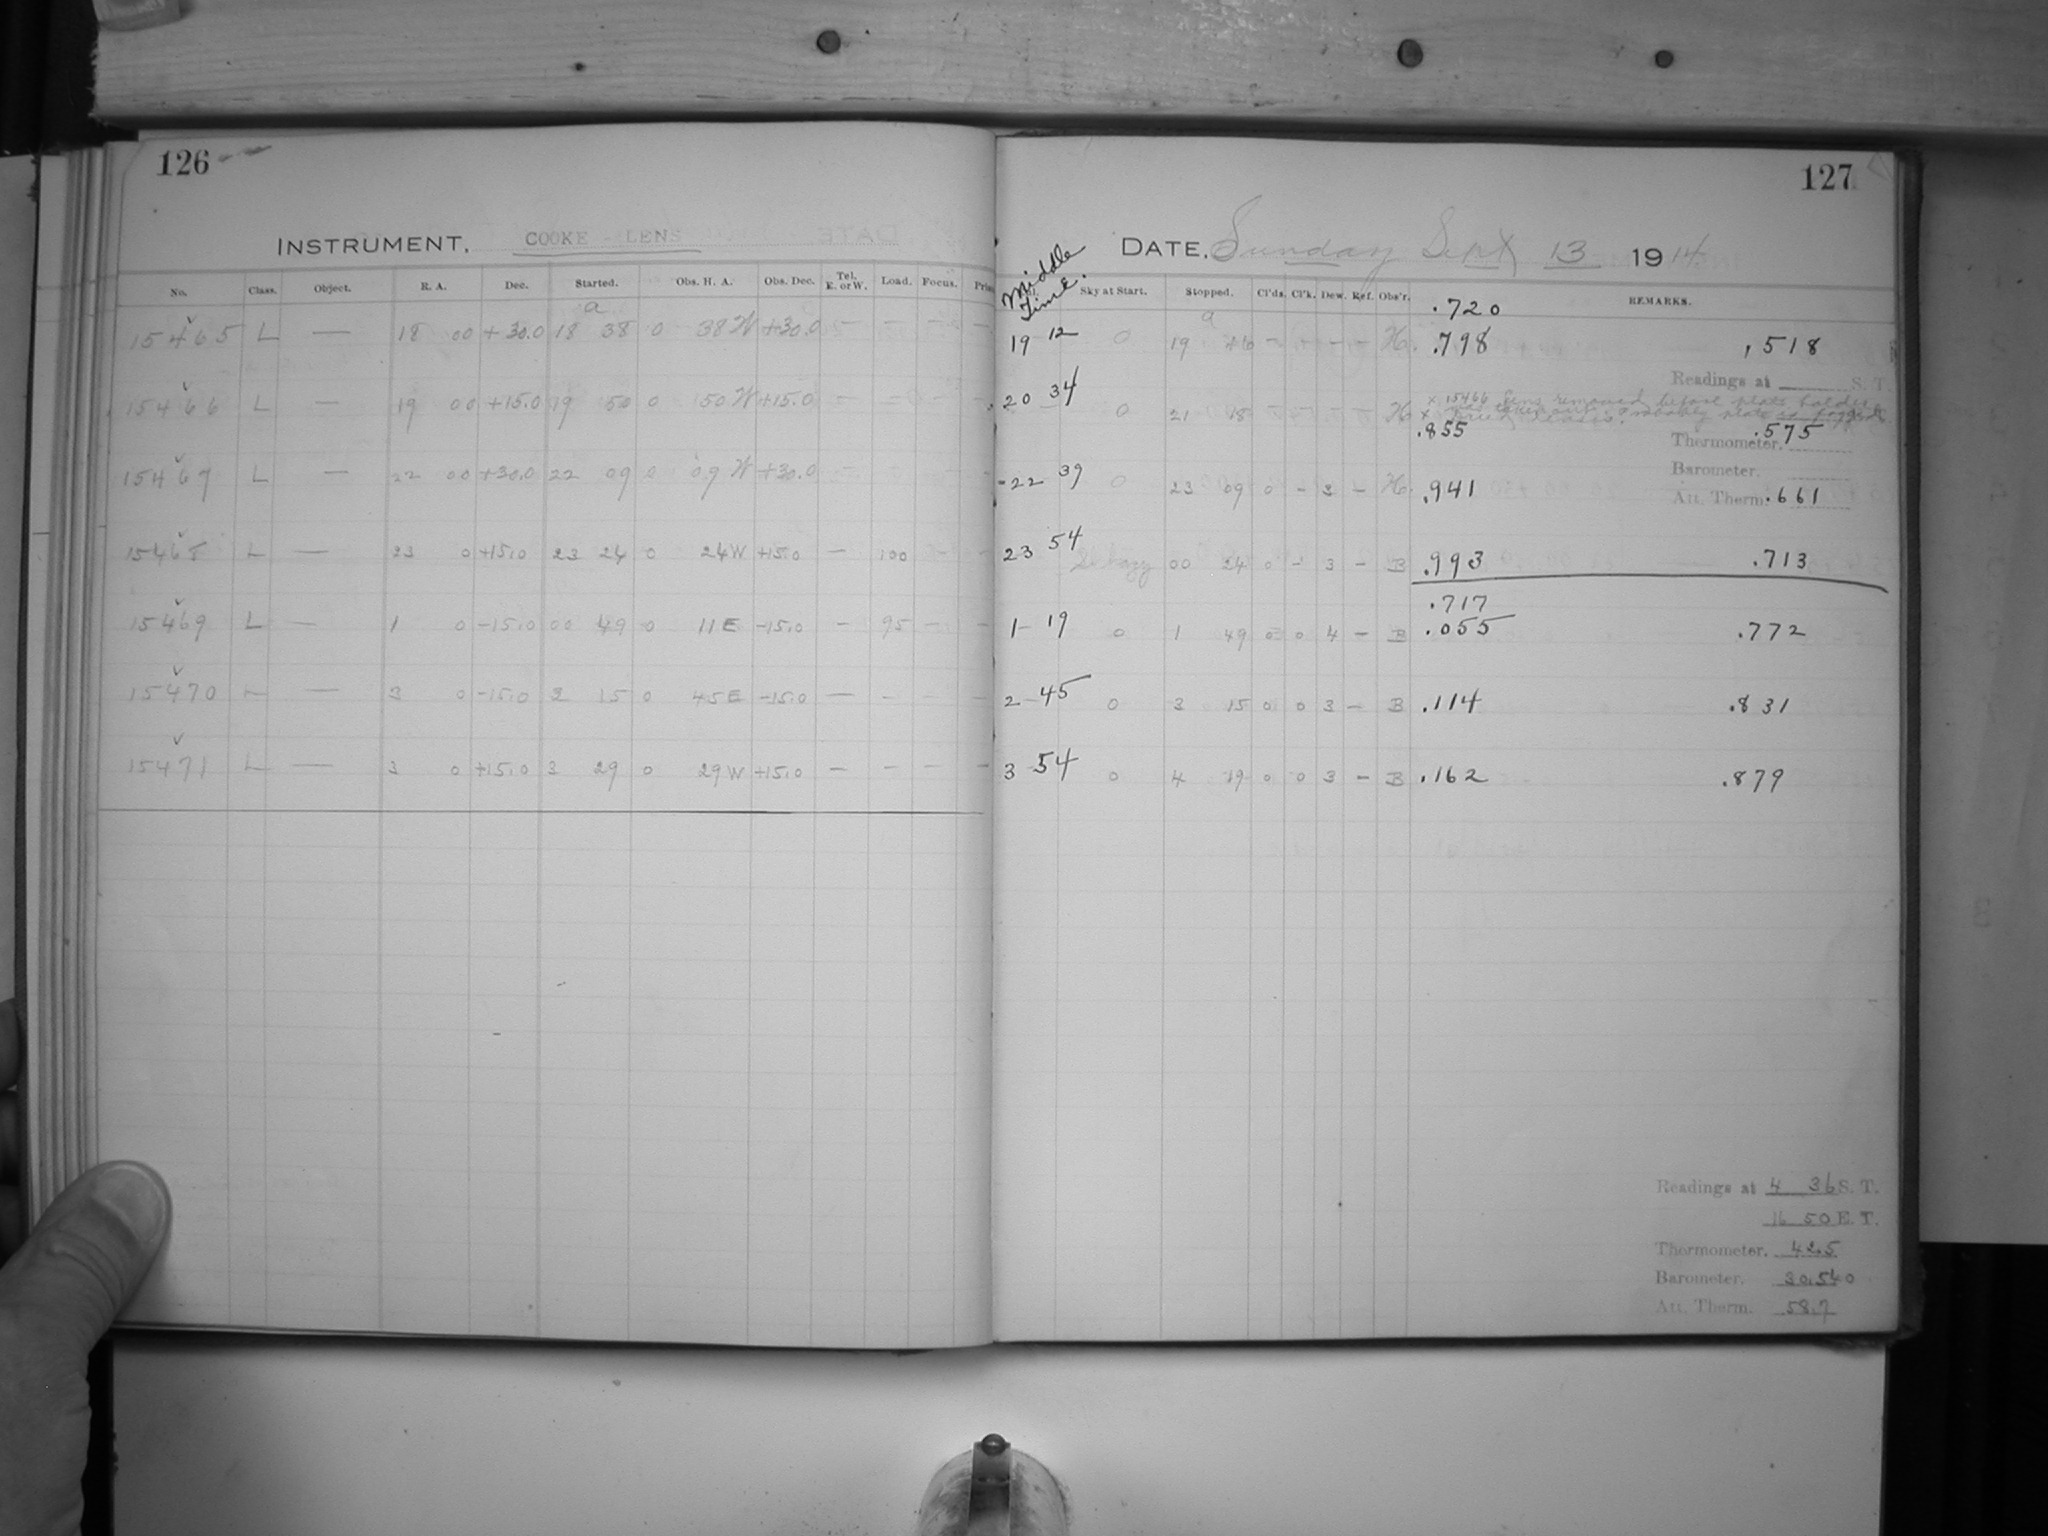 126
INSTRUMENT. COOKE - LENS
No. Class. Object. R. A. Dec. Started. Obs. H. A. Obs. Dec. Tel. E. or W. Load. Focus.
a
15465 L — 18 00 +30.0 18 38 0 38 W +30.0 — — — —
15466 L — 19 00 +15.0 19 50 0 50 W +15.0 — — — —
15467 L — 22 00 +30.0 22 09 0 09 W +30.0 — — — —
15468 L — 23 0 +15.0 23 24 0 24 W +15.0 — 100 — —
15469 L — 1 0 -15.0 00 49 0 11 E -15.0 — 95 — —
15470 L — 3 0 -15.0 2 15 0 45 E -15.0 — — — —
15471 L — 3 0 +15.0 3 29 0 29 W +15.0 — — — —
127
DATE. Sunday Sept 13 1914
Middle Time.
Sky at Start. Stopped. Cl'ds. Cl'k. Dew. Ref. Obs'r. REMARKS.
a .720
19 12 0 19 46 — — — — H. .798 .518
Readings at S. T.
x 15466 Lens removed before plate holder
20 34 0 21 18 — — — — H x was taken out. Probably plate is fogged
.855 .575
Thermometer.
Barometer.
22 39 0 23 09 0 - 3 - H. .941 Att. Therm. .661
23 54 Sl hazy 00 24 0 - 3 - B .993 .713
.717
1 19 0 1 49 0 0 4 - B .055 .772
2 45 0 3 15 0 0 3 - B .114 .831
3 54 0 4 19 0 0 3 - B .162 .879
Readings at 4 36 S. T.
16 50 E. T.
Thermometer. 42.5
Barometer. 30.540
Att. Therm. 58.7